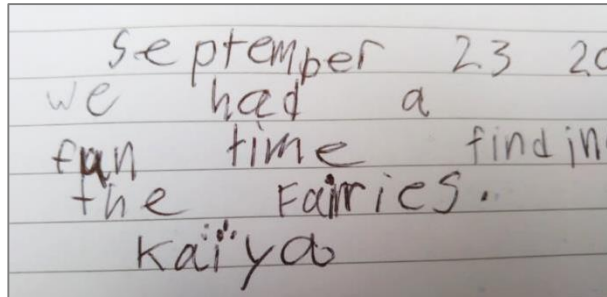 September 23 20
we had a
fun time findin
the Fairies.
Kaiya